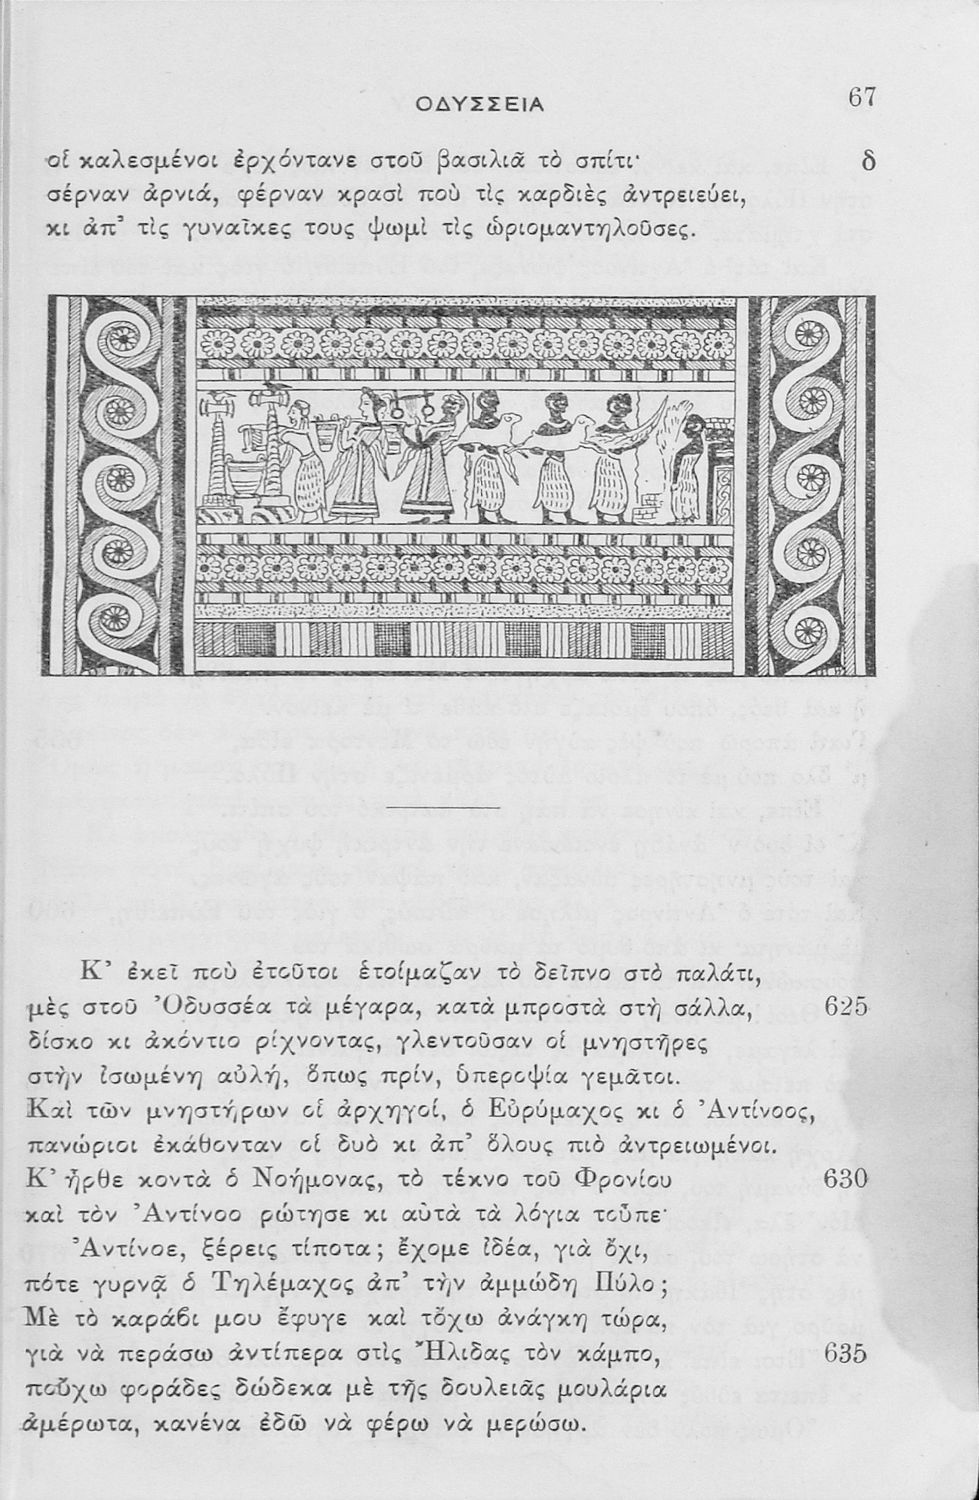 ΟΔΥΣΣΕΙΑ 67
οἱ καλεσμένοι ἐρχόντανε στοῦ βασιλιᾶ τὸ σπίτι· δ
σέρναν ἀρνιά, φέρναν κρασὶ ποὺ τὶς καρδιὲς ἀντρειεύει,
κι ἀπ᾽ τὶς γυναῖκες τους ψωμὶ τὶς ὡριομαντηλοῦσες.
Κ᾽ ἐκεῖ ποὺ ἐτοῦτοι ἑτοίμαζαν τὸ δεῖπνο στὸ παλάτι,
μὲς στοῦ Ὀδυσσέα τὰ μέγαρα, κατὰ μπροστὰ στὴ σάλλα, 625
δίσκο κι ἀκόντιο ρίχνοντας, γλεντοῦσαν οἱ μνηστῆρες
στὴν ἰσωμένη αὐλή, ὅπως πρίν, ὑπεροψία γεμᾶτοι.
Καὶ τῶν μνηστήρων οἱ ἀρχηγοί, ὁ Εὐρύμαχος κι ὁ Ἀντίνοος,
πανώριοι ἐκάθονταν οἱ δυὸ κι ἀπ᾽ ὅλους πιὸ ἀντρειωμένοι.
Κ᾽ ἦρθε κοντὰ ὁ Νοήμονας, τὸ τέκνο τοῦ Φρονίου 630
καὶ τὸν Ἀντίνοο ρώτησε κι αὐτὰ τὰ λόγια τοὖπε·
Ἀντίνοε, ξέρεις τίποτα; ἔχομε ἰδέα, γιὰ ὄχι,
πότε γυρνᾷ ὁ Τηλέμαχος ἀπ᾽ τὴν ἀμμώδη Πύλο;
Μὲ τὸ καράβι μου ἔφυγε καὶ τὄχω ἀνάγκη τώρα,
γιὰ νὰ περάσω ἀντίπερα στὶς Ἤλιδας τὸν κάμπο, 635
ποὔχω φοράδες δώδεκα μὲ τῆς δουλειᾶς μουλάρια
ἀμέρωτα, κανένα ἐδῶ νὰ φέρω νὰ μερώσω.